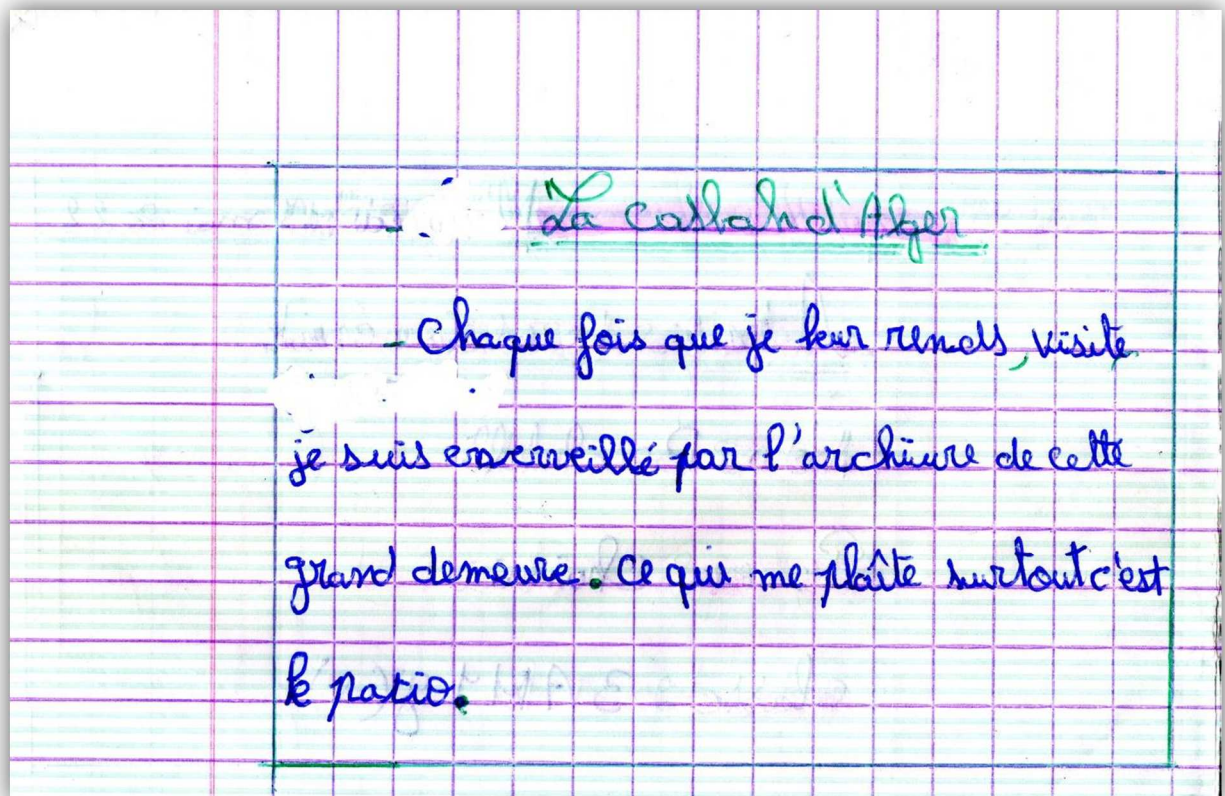 La casbah d'Alger
- Chaque fois que je leur rends, visite
je suis emerveillé par l'archiure de cette
grand demeure. Ce qui me plaîte surtout c'est
le patio.